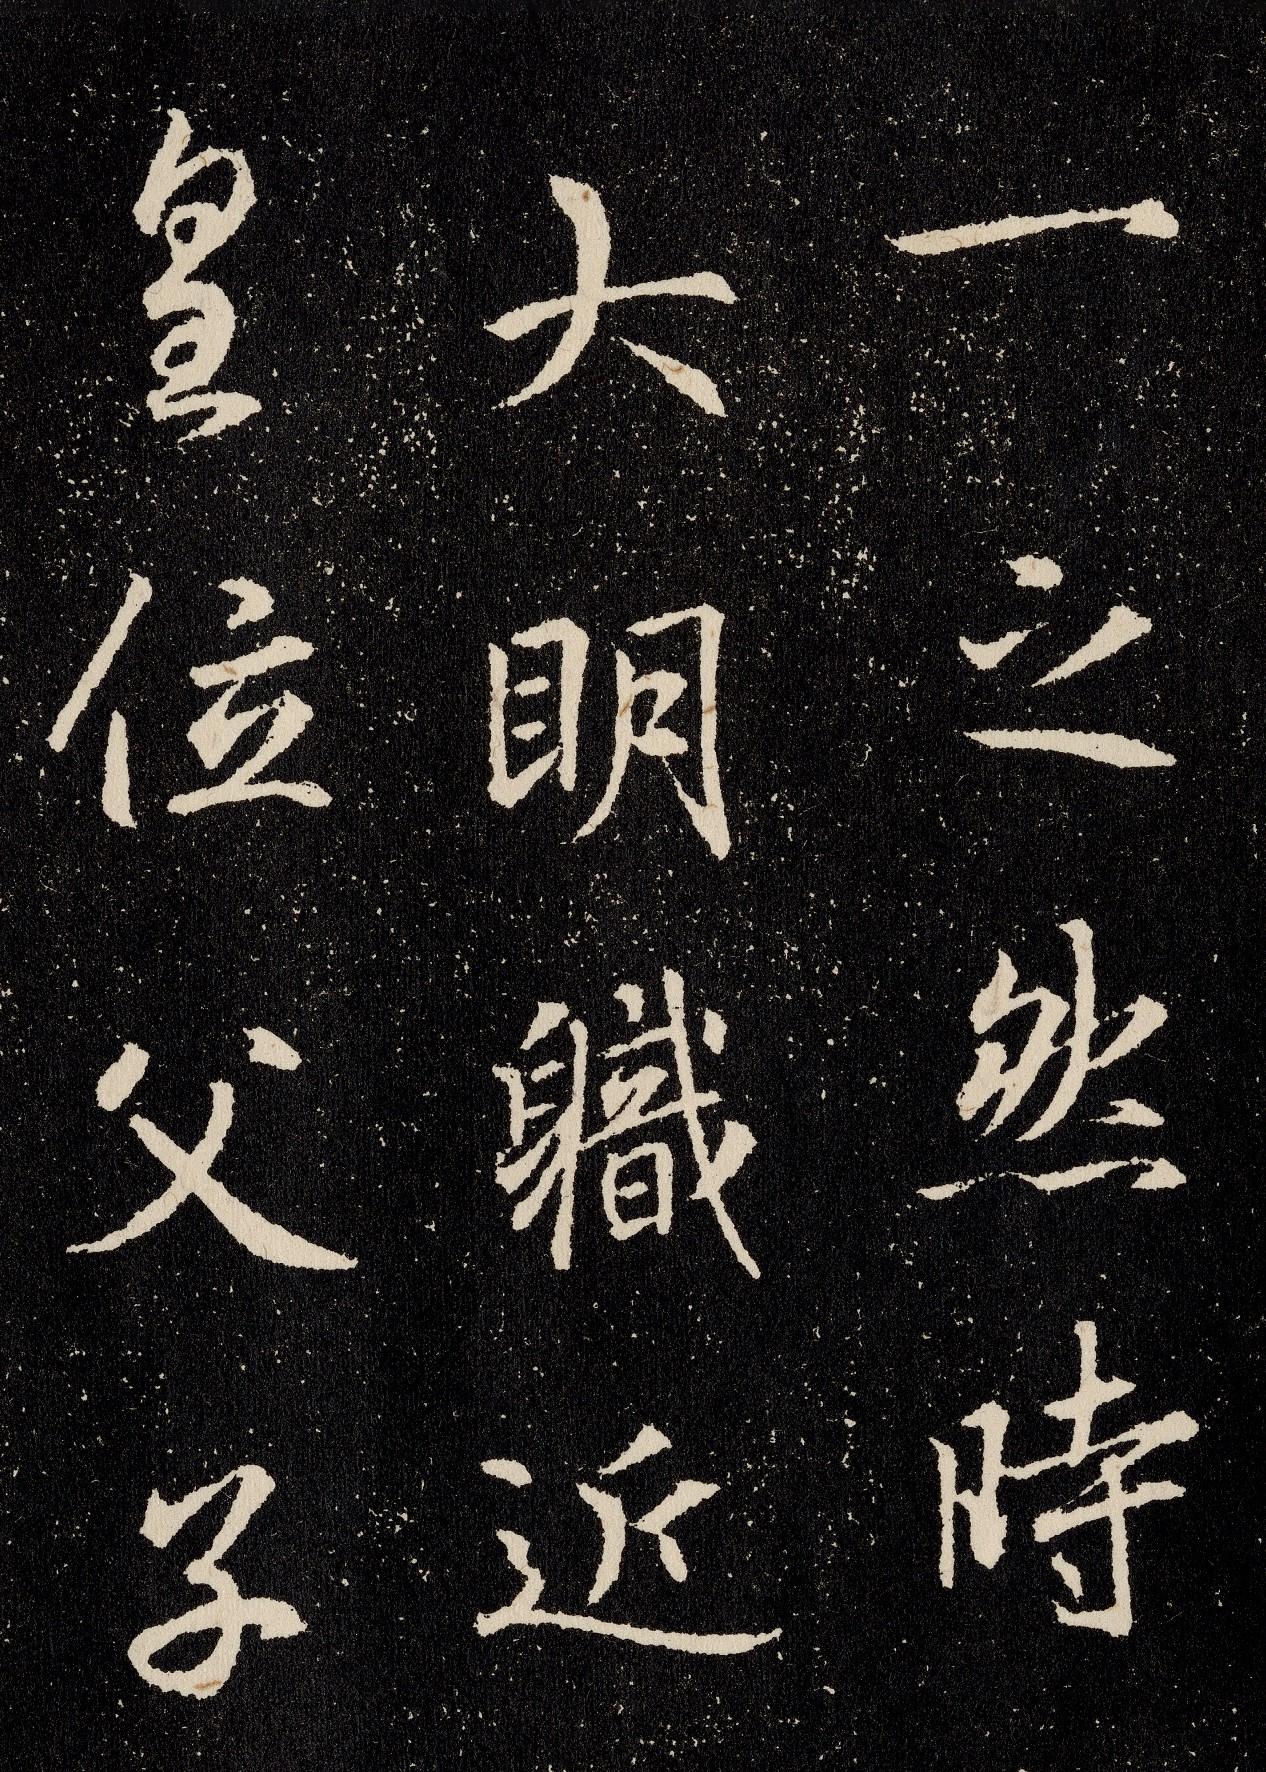 一之然時
大明職近
皇位父子